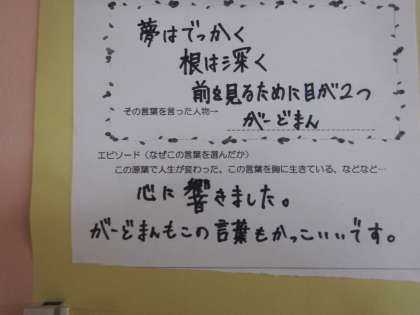 夢はでっかく
根は深く
前を見るために目が2つ
その言葉を言った人物→
がーどまん
エピソード（なぜこの言葉を選んだか）
この原葉で人生が変わった、この言葉を胸に生きている、などなど…
心に響きました。
がーどまんもこの言葉もかっこいいです。